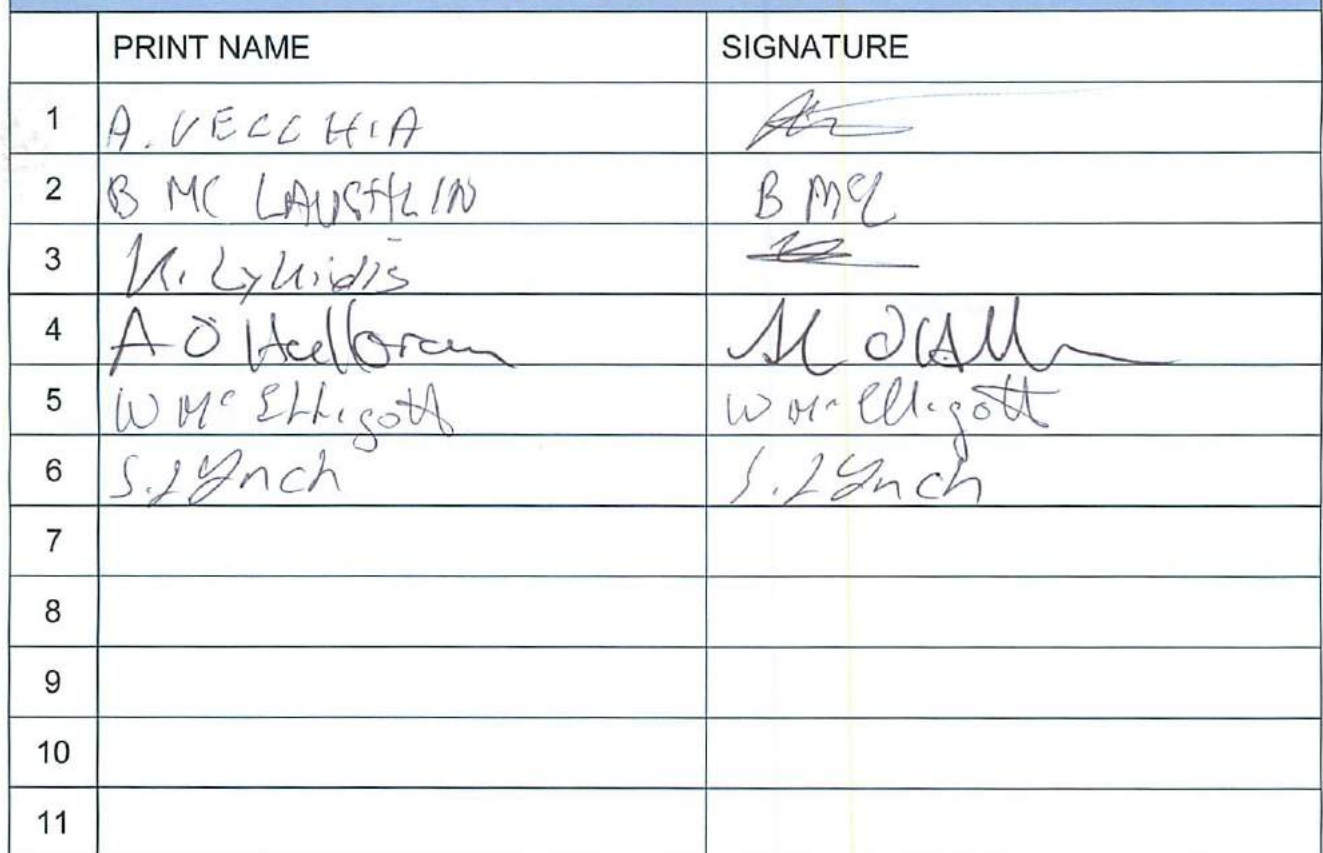 PRINT NAME SIGNATURE
1 A. VECCHIA
2 B MC LAUGHLIN B McL
3 K. Lykidis
4 A O Halloran
5 W Mc Elligott W Mc Elligott
6 S. Lynch S. Lynch
7
8
9
10
11